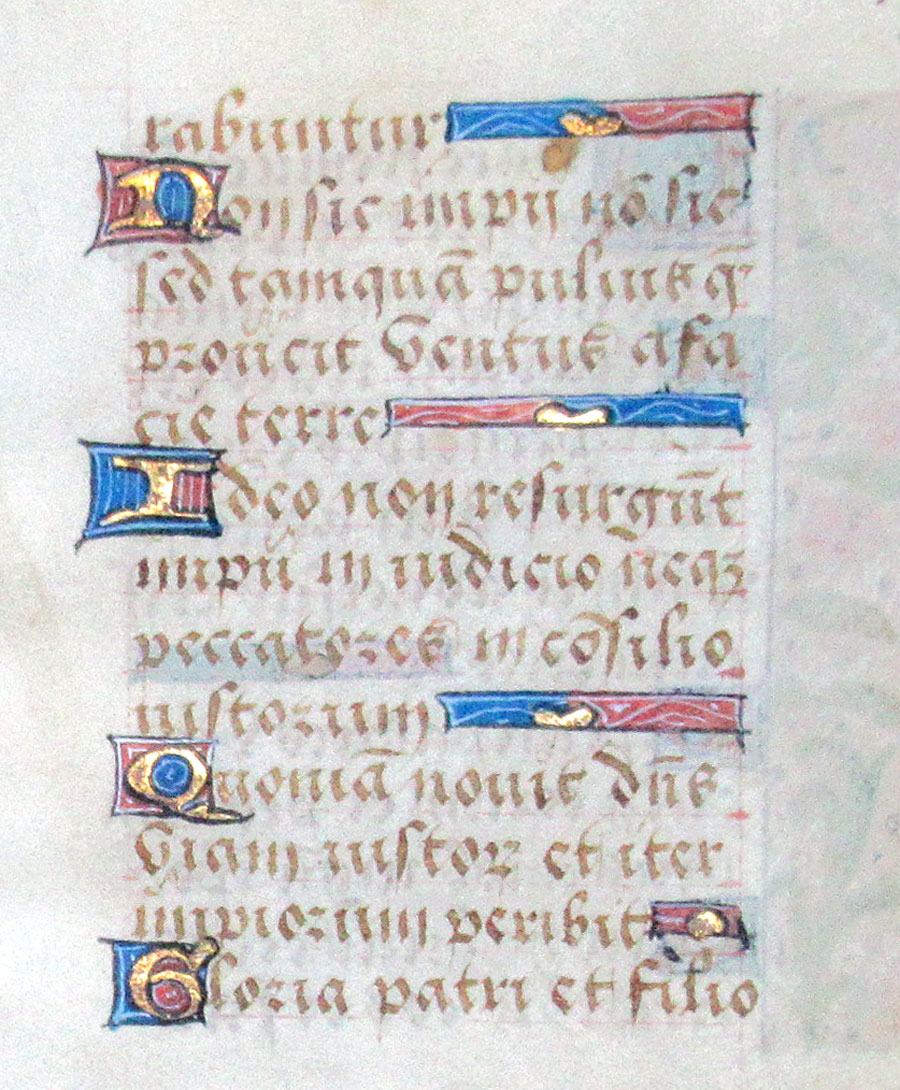 rabuntur
Non sic impij nō sic
sed tamquā puluis q̄
proiicit ventus a fa
cie terre
Ideo non resurgūt
impii in iudicio neqꝫ
peccatores in cōsilio
iustorum
Quoniā novit dn̄s
viam iustoꝝ et iter
impiorum peribit
Gloria patri et filio